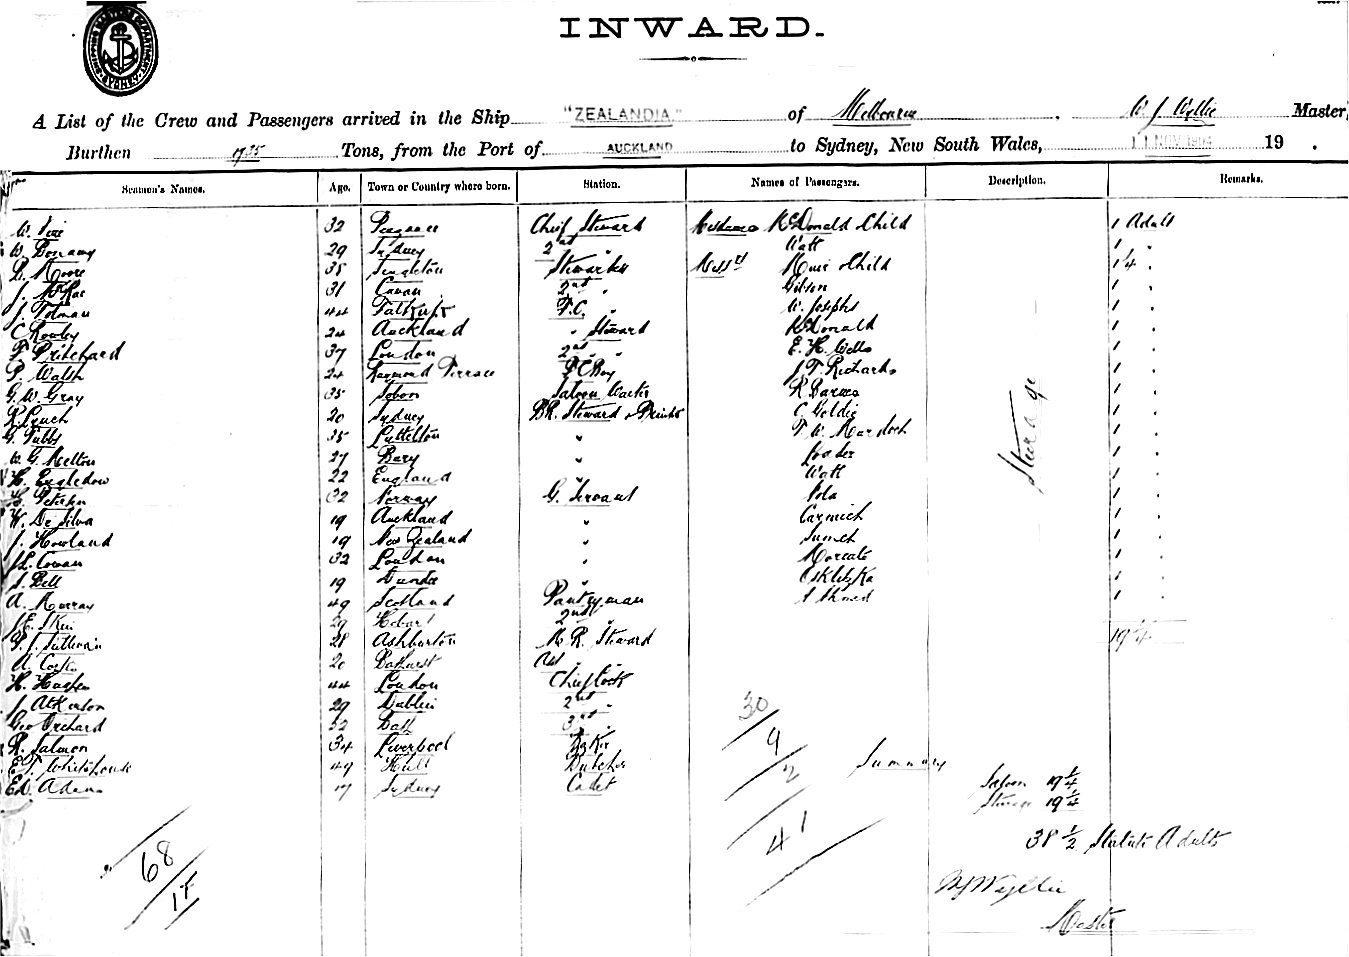 INWARD.
A List of the Crew and Passengers arrived in the Ship "ZEALANDIA" of Melbourne, W. J. Wyllie Master,
Burthen Tons, from the Port of AUCKLAND to Sydney, New South Wales, 11 NOV 19 .
Seamen's Names. Age. Town or Country where born. Station. Names of Passengers. Description. Remarks.
W. 32 Chief Steward McDonald Child 1 Adult
W. Bonamy 29 Sydney 2nd " Watt 1 "
R. Moore 38 Singleton Muir & Child 1 1/4 "
J. McRae 31 Cavan 2nd " Gibson 1 "
J. Tolman 44 Falkirk F.C. " W. Josephs 1 "
C. Rowley 24 Auckland " Steward McDonald 1 "
F. Pritchard 37 London 2nd " " E. H. Wells 1 "
P. Walsh 24 Raymond Terrace J. T. Richards 1 "
G. W. Gray 35 Saloon Waiter R Barnes 1 "
R. Lynch 20 Sydney B.R. Steward & C. Goldie 1 "
G. Tubbs 35 Lyttelton " F. W. Murdoch 1 "
W. G. Melton 27 Bury " 1 "
H. Engledow 22 England " Watt 1 "
H. Petersen 32 Norway G. Servant Pola 1 "
W. De Silva 19 Auckland " Carmich 1 "
J. Howland 19 New Zealand " 1 "
J. L. Cowan 32 London " 1 "
J. Bell 19 Dundee " 1 "
A. Murray 49 Scotland Pantryman Ahmed 1 "
J. E. 29 Hobart 2nd "
F. J. Sullivan 28 Ashburton M. R. Steward 19 1/4
A. 20 Bathurst " "
H. 44 London Chief Cook
J. Atkinson 29 Dublin 2nd "
Geo Orchard 32 Bath 3rd "
R. Salmon 34 Liverpool Baker
E. T. Whitehouse 49 Hull Butcher
Ed. Adams 17 Sydney Cadet
Steerage
30
9
2
41
68
17
Summary
Saloon 19 1/4
Steerage 19 1/4
38 1/2 Statute Adults
W J Wyllie
Master